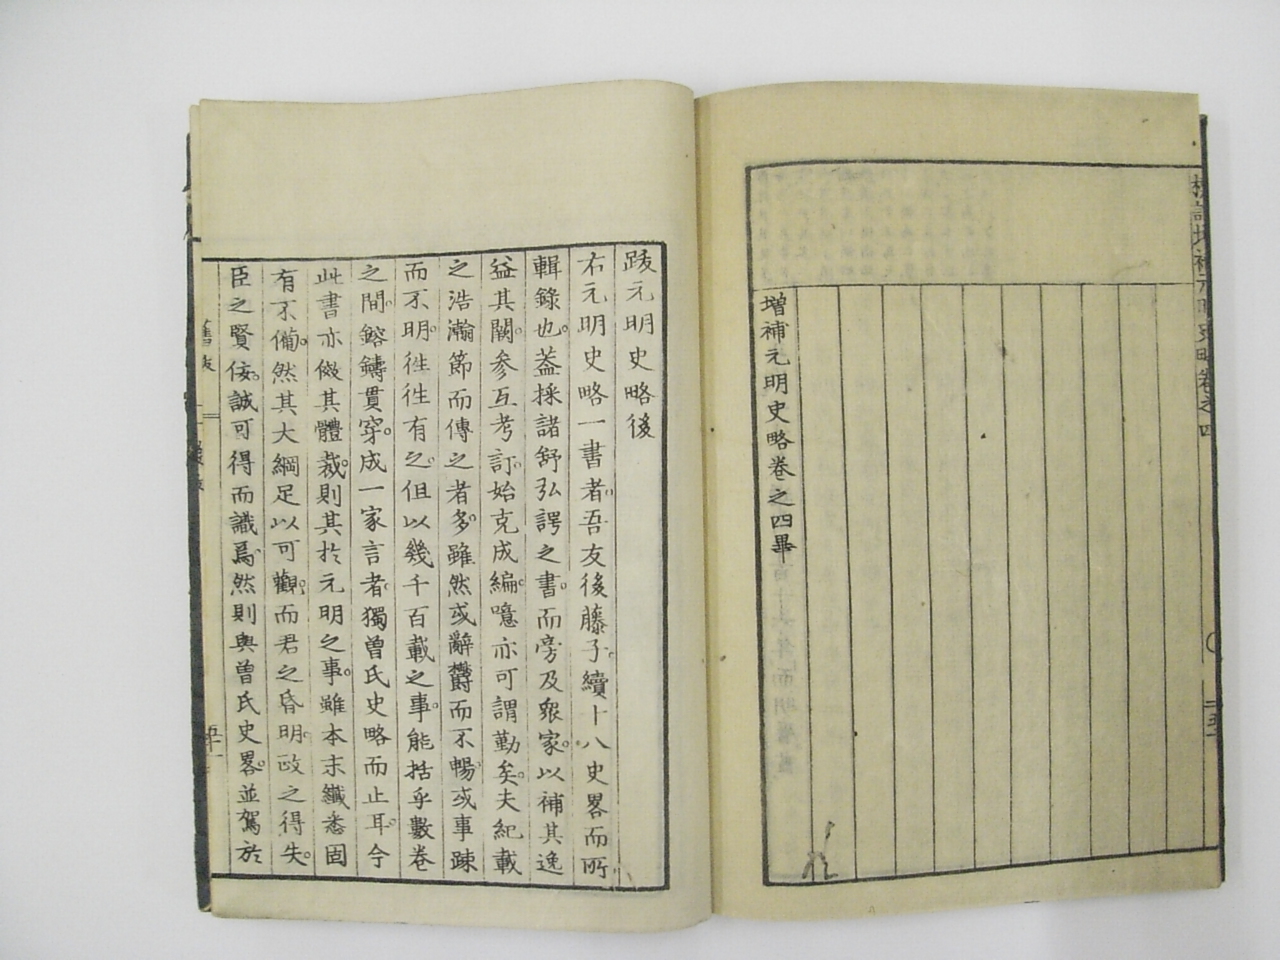 増補元明史略卷之四畢
跋元明史略後
右元明史略一書者。吾友後藤子。續十八史畧而所
輯錄也。蓋採諸舒弘諤之書。而旁及衆家。以補其逸
益其闕。參互考訂。始克成編。噫亦可謂勤矣。夫紀載
之浩瀚。節而傳之者多。雖然或辭欝而不暢。或事疎
而不明。徃徃有之。但以幾千百載之事。能括乎數卷
之間。鎔鑄貫穿。成一家言者。獨曽氏史略而止耳。今
此書亦倣其體裁。則其於元明之事。雖本末纎悉固
有不備。然其大綱足以可觀。而君之昏明。政之得失。
臣之賢佞。誠可得而識焉。然則與曽氏史畧。並駕於
舊跋